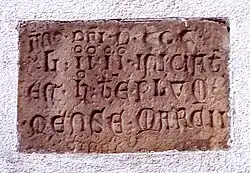 ANO DNI M CCC
L IIII
EST H TEPLVM
MENSE MARCII